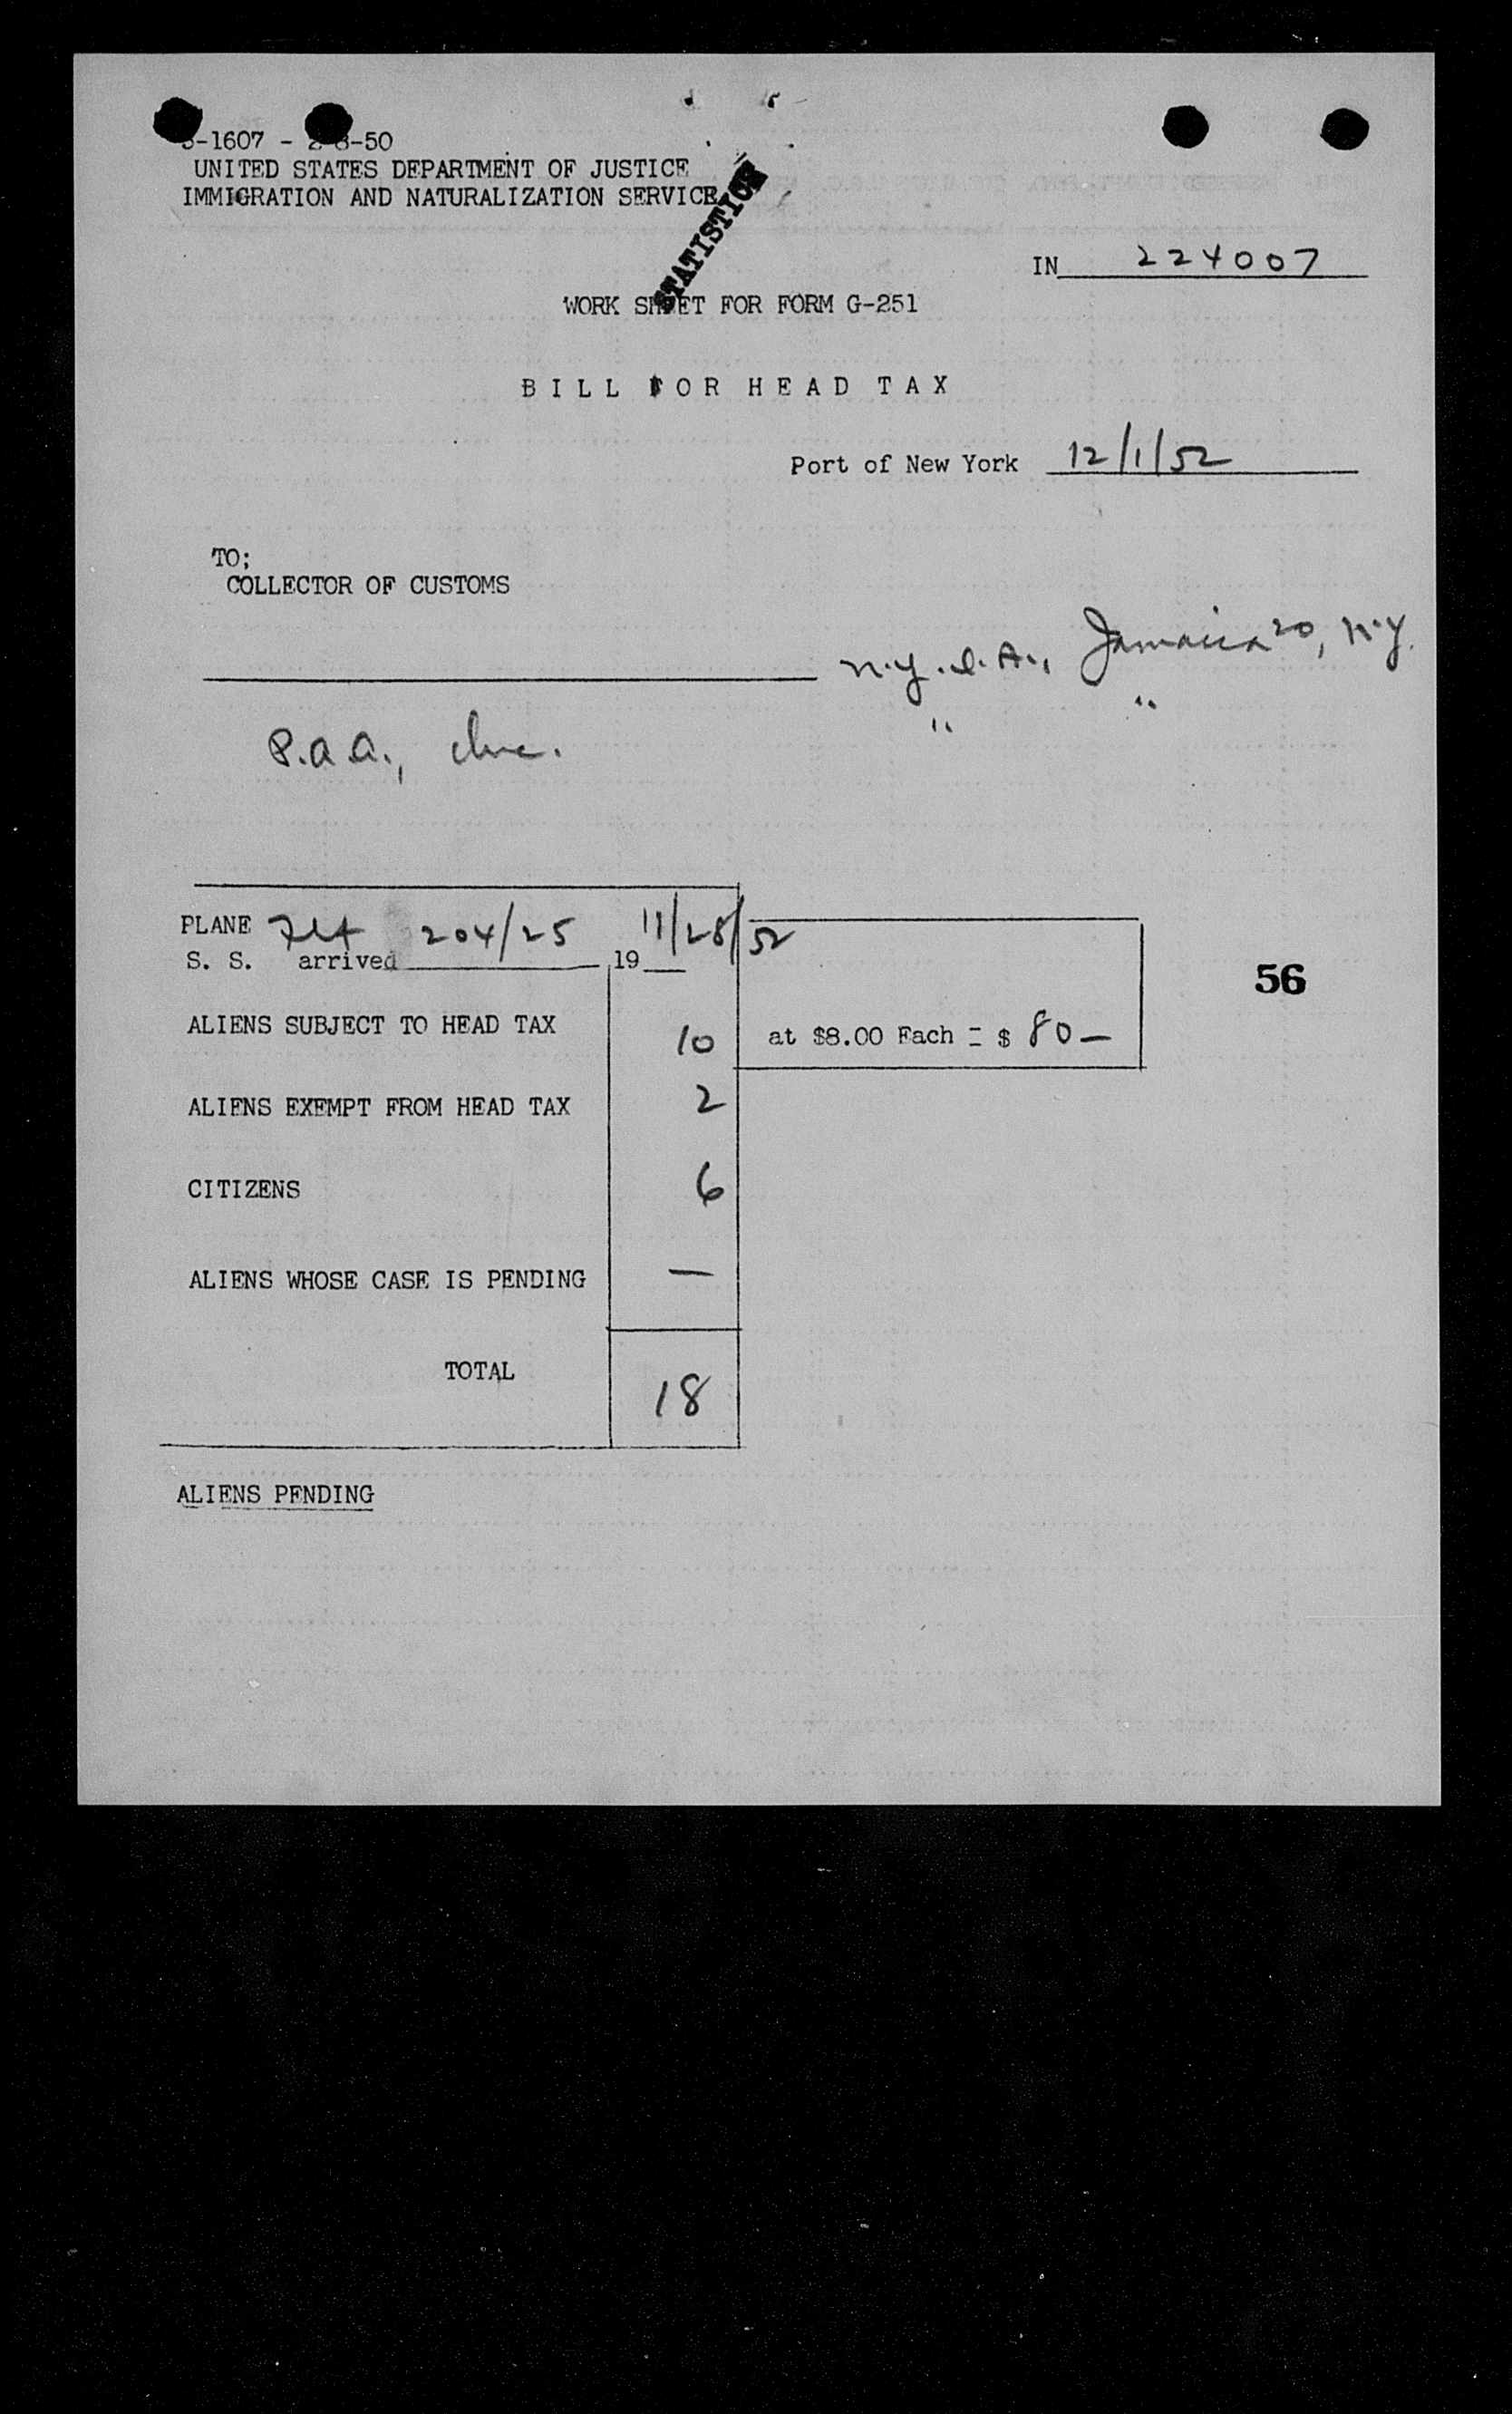 -1607 - -50
UNITED STATES DEPARTMENT OF JUSTICE
IMMIGRATION AND NATURALIZATION SERVICE
STATISTICS
IN 224007
WORK SHEET FOR FORM G-251
BILL FOR HEAD TAX
Port of New York 12/1/52
TO;
COLLECTOR OF CUSTOMS
N.Y.I.A., Jamaica 20, N.Y.
P.A.A., Inc. " "
PLANE Flt 204/25 11/28/52
S. S. arrived 19
56
ALIENS SUBJECT TO HEAD TAX 10 at $8.00 Each = $ 80—
ALIENS EXEMPT FROM HEAD TAX 2
CITIZENS 6
ALIENS WHOSE CASE IS PENDING —
TOTAL 18
ALIENS PENDING